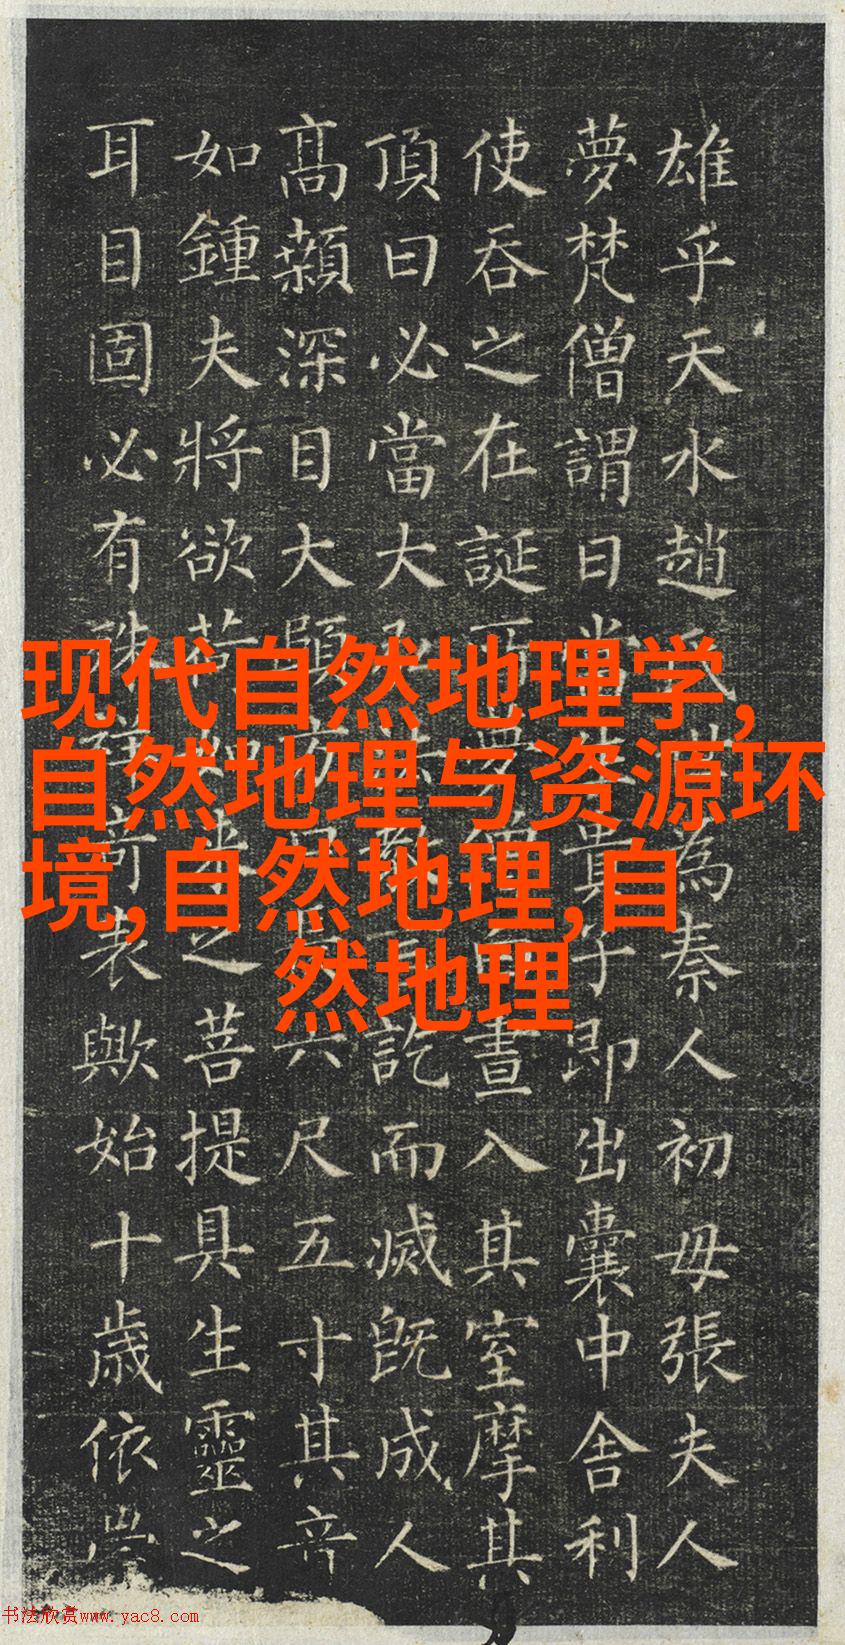 雄乎天水趙氏為秦人初母張夫人
夢梵僧謂曰當貴子即出囊中舍利
使吞之在誕所夢僧白晝入其室摩其
頂曰必當大訖而滅既成人
高顙深目大頤方六尺五寸其音
如鍾夫將欲荷來之菩提具生靈之
耳目固必有殊祥奇表歟始十歲依
现代自然地理学,
自然地理与资源环
境,自然地理,自
然地理
书法欣赏www.yac8.com